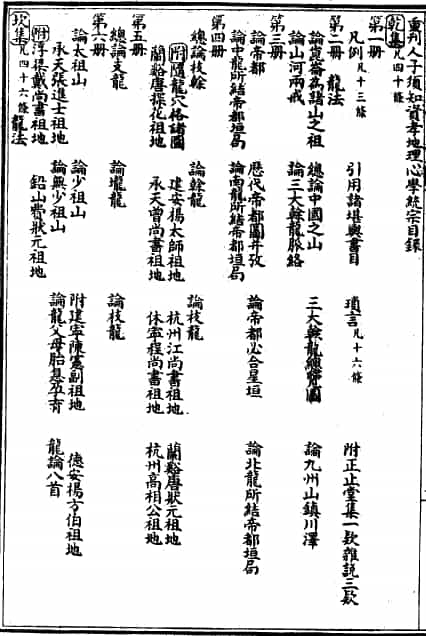 重刋人子須知資孝地理心學統宗目錄
乾集凡四十條
第一册
凡例凡十三條 引用諸堪輿書目 瑣言凡十六條 附正止堂集一欵雜説三欵
第二册 龍法
論崑崙為諸山之祖 總論中國之山 三大榦龍總覽圖 論九州山鎮川澤
論山河兩戒 論三大榦龍脈絡
第三册
論帝都 歷代帝都圖并攷 論帝都必合星垣 論北龍所結帝都垣局
論中龍所結帝都垣局 論南龍所結帝都垣局
第四册
總論枝榦 論榦龍 論枝龍
附隨龍穴格諸圖 建安楊太師祖地 杭州江尚書祖地 蘭谿唐狀元祖地
蘭谿唐探花祖地 承天曾尚書祖地 休寧程尚書祖地 杭州高相公祖地
第五册
總論支龍 論壠龍 論枝龍
第六册
論太祖山 論少祖山 附建寧陳憲副祖地 德安楊方伯祖地
承天張進士祖地 論無少祖山 論龍父母胎息孕育 龍論八首
附浮梁戴尚書祖地 鉛山費狀元祖地
坎集凡四十六條 龍法